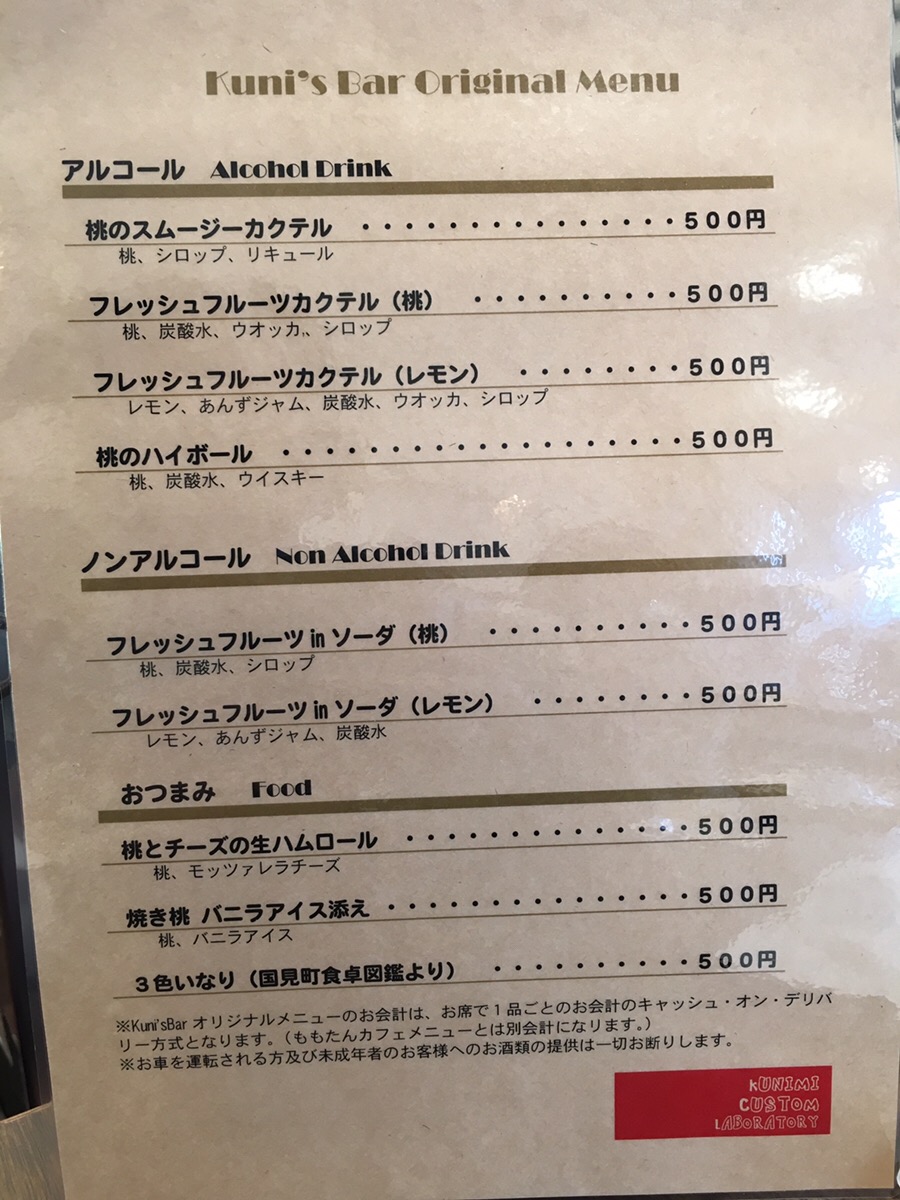 Kuni's Bar Original Menu
アルコール Alcohol Drink
桃のスムージーカクテル ・・・・・・・・・・・・・・・５００円
桃、シロップ、リキュール
フレッシュフルーツカクテル（桃） ・・・・・・・・・・５００円
桃、炭酸水、ウオッカ、、シロップ
フレッシュフルーツカクテル（レモン） ・・・・・・・・５００円
レモン、あんずジャム、炭酸水、ウオッカ、シロップ
桃のハイボール ・・・・・・・・・・・・・・・・・・５００円
桃、炭酸水、ウイスキー
ノンアルコール Non Alcohol Drink
フレッシュフルーツ in ソーダ（桃） ・・・・・・・・・・５００円
桃、炭酸水、シロップ
フレッシュフルーツ in ソーダ（レモン） ・・・・・・・・５００円
レモン、あんずジャム、炭酸水
おつまみ Food
桃とチーズの生ハムロール ・・・・・・・・・・・・・５００円
桃、モッツァレラチーズ
焼き桃 バニラアイス添え ・・・・・・・・・・・・・・５００円
桃、バニラアイス
３色いなり（国見町食卓図鑑より） ・・・・・・・・・・５００円
※Kuni'sBar オリジナルメニューのお会計は、お席で１品ごとのお会計のキャッシュ・オン・デリバ
リー方式となります。（ももたんカフェメニューとは別会計になります。）
※お車を運転される方及び未成年者のお客様へのお酒類の提供は一切お断りします。
KUNIMI
CUSTOM
LABORATORY